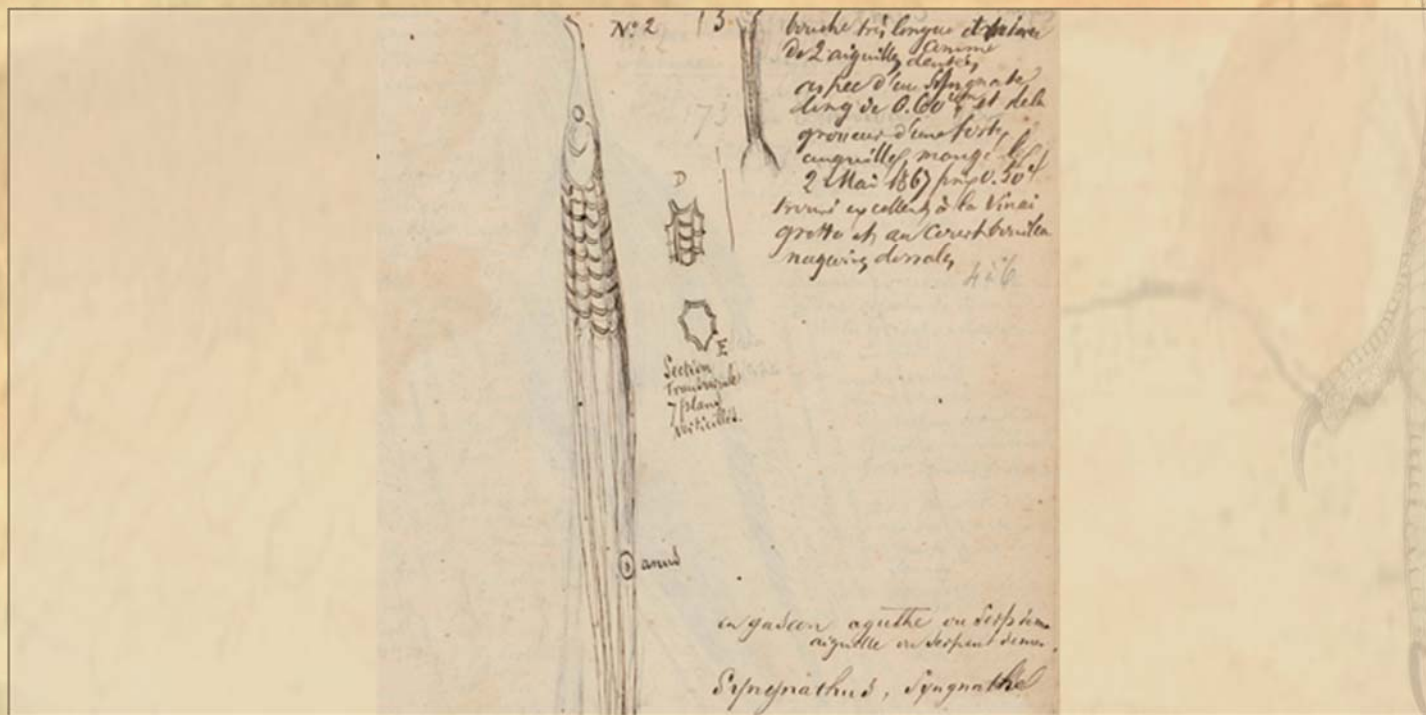 N° 2
13
bouche très longue et
de 2 aiguilles comme dentées
espece d'un Syngnate
long de 0.60 cm et de la
grosseur d'une forte
anguille, mangé le
2 Mai 1867 0.50
trouvé excellent à la Vinai
grette et au Court bouillon
nageoires dorsales
4 à 6
73
D
E
Section
Transversale
7 plans
Verticilles.
anus
en gascon agulhe ou
aiguille ou Serpent de mer.
Syngnathus, Syngnathe